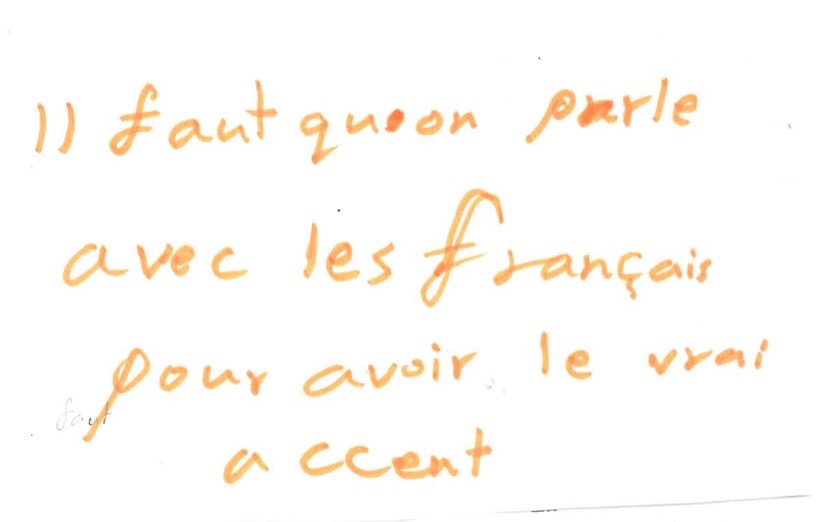 Il faut qu'on parle
avec les français
pour avoir le vrai
faut
accent